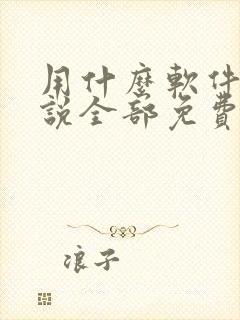 用什麼軟件
說全部免費
浪子